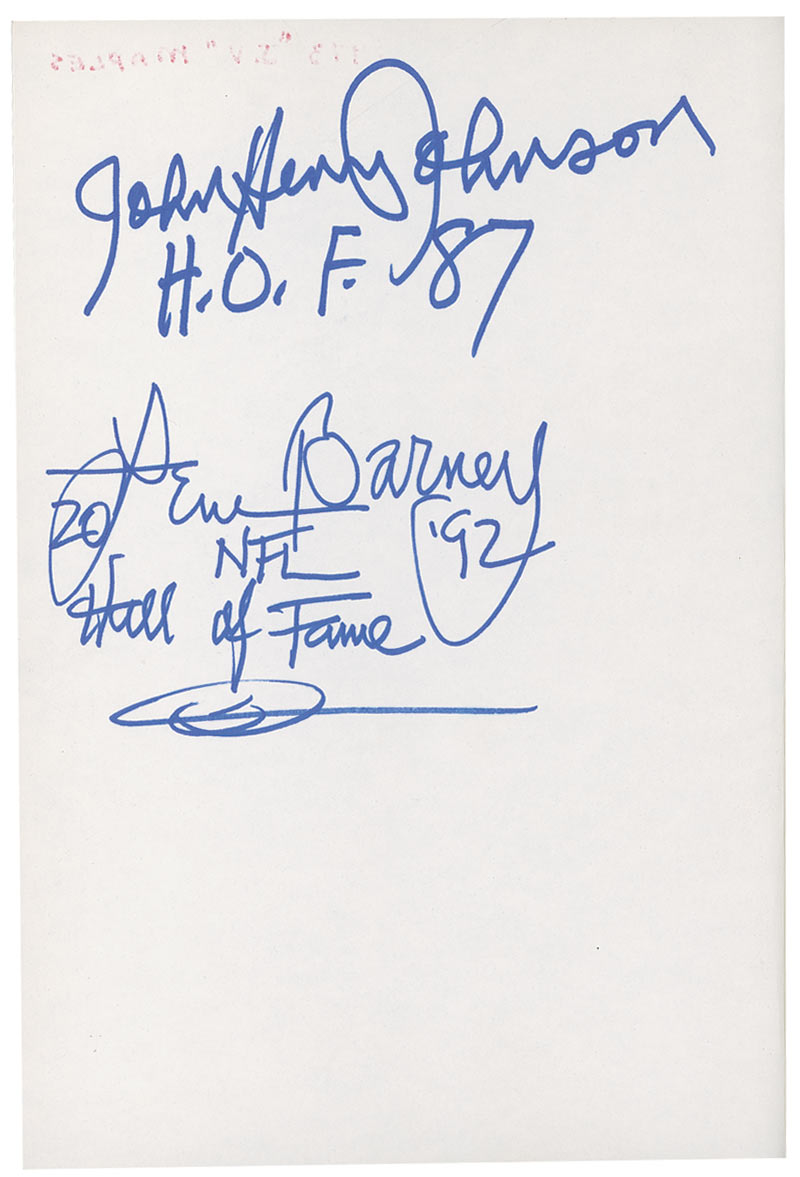 John Henry Johnson
H.O.F. 87
Lem Barney
20 NFL '92
Hall of Fame